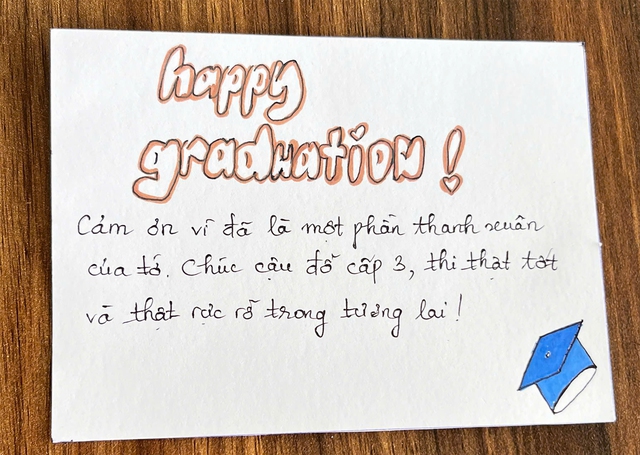 happy
graduation!
Cảm ơn vì đã là một phần thanh xuân
của tớ. Chúc cậu đỗ cấp 3, thi thật tốt
và thật rực rỡ trong tương lai!